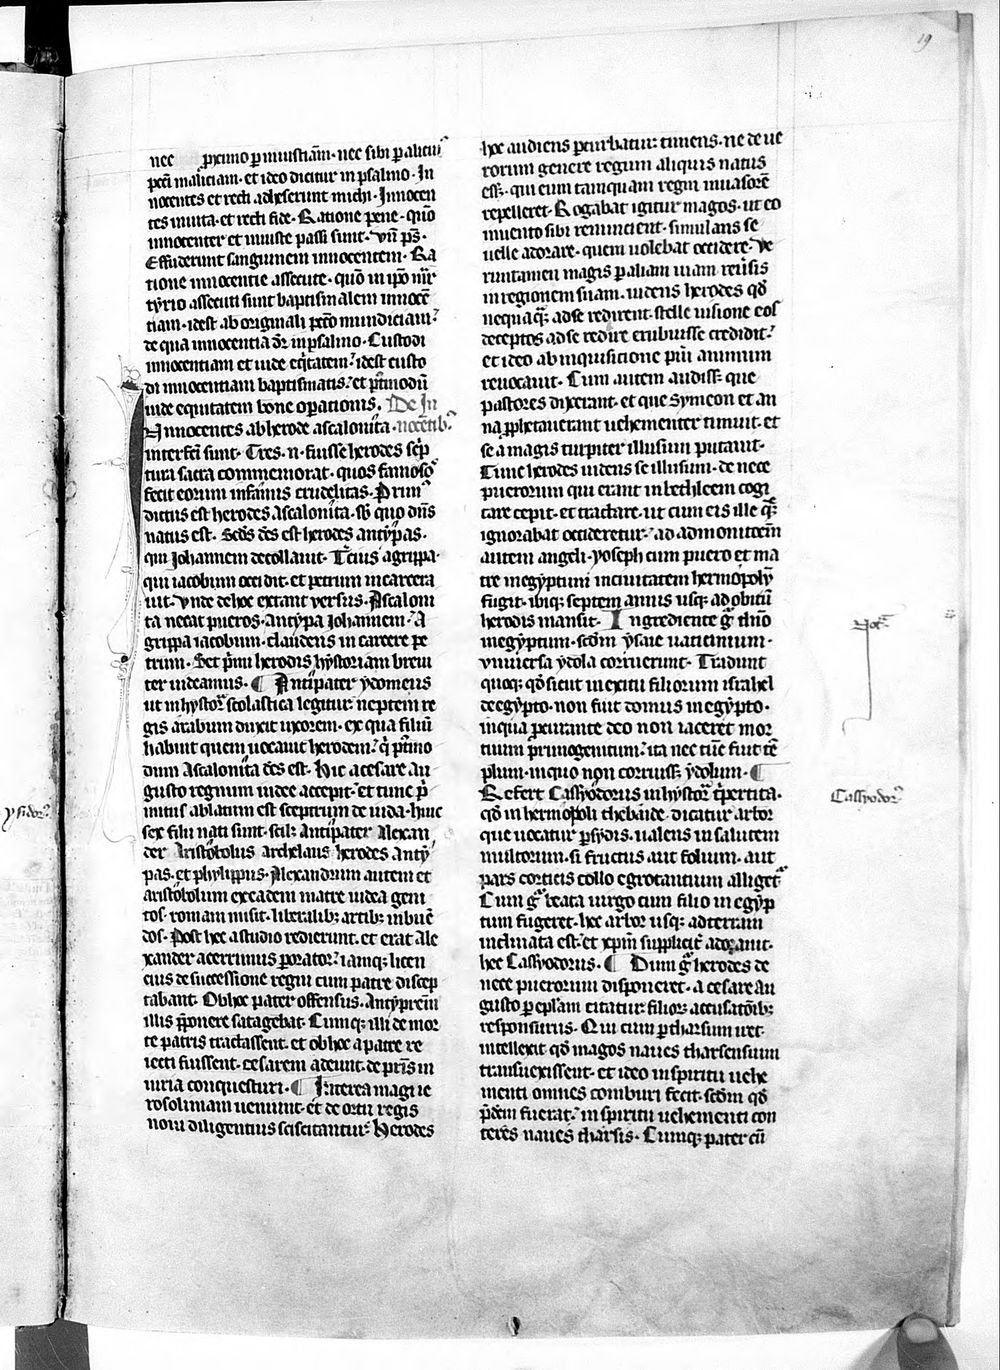 19
nec ꝓximo ꝑ iniusticiam· nec sibi ꝑ alicuiꝰ
pcti maliciam· et ideo dicitur in psalmo· In
nocentes et recti adheserunt michi· Innocen
tes in uita· et recti fide· Ratione pene· quō
innocenter et iniuste passi sunt· Vn̄ ps̄·
Effuderunt sanguinem innocentem· Ra
tione innocentie assecute· quō in ip̄o mr̄
tyrio assecuti sunt baptismalem innocē
tiam· idest ab originali pctō mundiciam·
de qua innocentia dr̄ in psalmo· Custodi
innocentiam et uide eq̄itatem· idest custo
di innocentiam baptismatis· et p̄tmodū
uide equitatem bone oꝑationis· De In
Innocentes ab herode ascalonita· nocētibꝰ
interfēi sunt· Tres· n̄· fuisse herodes scp̄
tura sacra commemorat· quos famosos
fecit eorum infamis crudelitas· Primꝰ
dictus est herodes Ascalonita· sb̄ quo dn̄s
natus est· Scd̄s dc̄s est herodes antypas·
qui Johannem decollauit· Tc̄ius agrippa·
qui iacobum occidit· et petrum incarcera
uit· Vnde de hoc extant versus· Ascaloni
ta necat pueros· Antypa Johannem· A
grippa iacobum· claudens in carcere pe
trum· Set p̄mi herodis hystoriam breui
ter uideamus· ¶ Antipater ydomeus
ut in hystor̄ scolastica legitur neptem re
gis arabum duxit uxorem· ex qua filiū
habuit quem uocauit herodem· q̄ p̄tmo
dum Ascalonita dc̄s est· Hic a cesare au
gusto regnum iudee accepit· et tunc p̄
mitus ablatum est sceptrum de iuda· huic
sex filii nati sunt· scil; Antipater Alexan
der Aristobolus archelaus herodes anty
pas· et phylippus· Alexandrum autem et
aristobolum ex eadem matre iudea geni
tos· romam misit· liberalib; artib; inbuē
dos· Post hec a studio redierunt· et erat Ale
xander acerrimus ꝑorator· iamq; licen
cius de successione regni cum patre discep
tabant· Ob hoc pater offensus· Antyprēm
illis p̄ponere satagebat· Cumq; illi de mor
te patris tractassent· et ob hoc a patre re
iecti fuissent· cesarem adeunt· de pr̄is in
iuria conquesturi· ¶ Interea magi ie
rosolimam ueniunt· et de ortu regis
noui diligentius sciscitantur· Herodes
hec audiens ꝑturbatur· timens· ne de ue
rorum genere regum aliquis natus
ess;· qui eum tamquam regni inuasorē
repelleret· Rogabat igitur magos· ut eo
inuento sibi renuncient· simulans se
uelle adorare· quem uolebat occidere· Ve
runtamen magis ꝑ aliam uiam reu̇sis
in regionem suam· uidens herodes qd̄
nequaq̄; ad se redirent· stelle uisione eos
deceptos ad se redire erubuisse credidit·
et ideo ab inquisicione pu̇i animum
reuocauit· Cum autem audiss; que
pastores dixerant· et que Symeon et an
na ꝓphetauerant uehementer timuit· et
se a magis turpiter illusum putauit·
Tunc herodes uidens se illusum· de nece
puerorum qui erant in bethleem cogi
tare cepit· et tractare· ut cum eis ille q̄;
ignorabat occideretur· ad admonitiōem
autem angeli· Yoseph cum puero et ma
tre in egyptum in ciuitatem hermopoly
fugit· ibiq; septem annis usq; ad obitū
herodis mansit· Ingrediente g̊ dn̄o
in egyptum· scd̄m ysaie uaticinium·
Vniuersa ydola corruerunt· Tradunt
quoq; qd̄ sicut in exitu filiorum israhel
de egypto· non fuit domus in egypto·
in qua ꝑcurante deo non iaceret mor
tuum primogenitum· ita nec tūc fuit tē
plum· in quo non corruiss; ydolum· ¶
Refert Cassyodorus in hystor̄ tripertita·
qd̄ in hermopoli thebaide· dicatur arbor
que uocatur ꝑsydis· ualens in salutem
multorum· si fructus aut folium· aut
pars corticis collo egrotantium alliget̄
Cum g̊ beata uirgo cum filio in egyp
tum fugeret· hec arbor usq; ad terram
inclinata est· et xpm̄ supplicit̄ adorauit·
hec Cassyodorus· ¶ Dum g̊ herodes de
nece puerorum disponeret· a cesare au
gusto ꝑ eplam citatur· filior; accusatōib;
responsurus· Qui cum ꝑ tharsum iret·
intellexit qd̄ magos naues tharsensium
transuexissent· et ideo in spiritu uehe
menti omnes comburi fecit· scd̄m qd̄
p̄dcm fuerat· in spiritu uehementi con
teres naues tharsis· Cumq; pater cū
ysidor̄
Not̄
Cassyodor̄